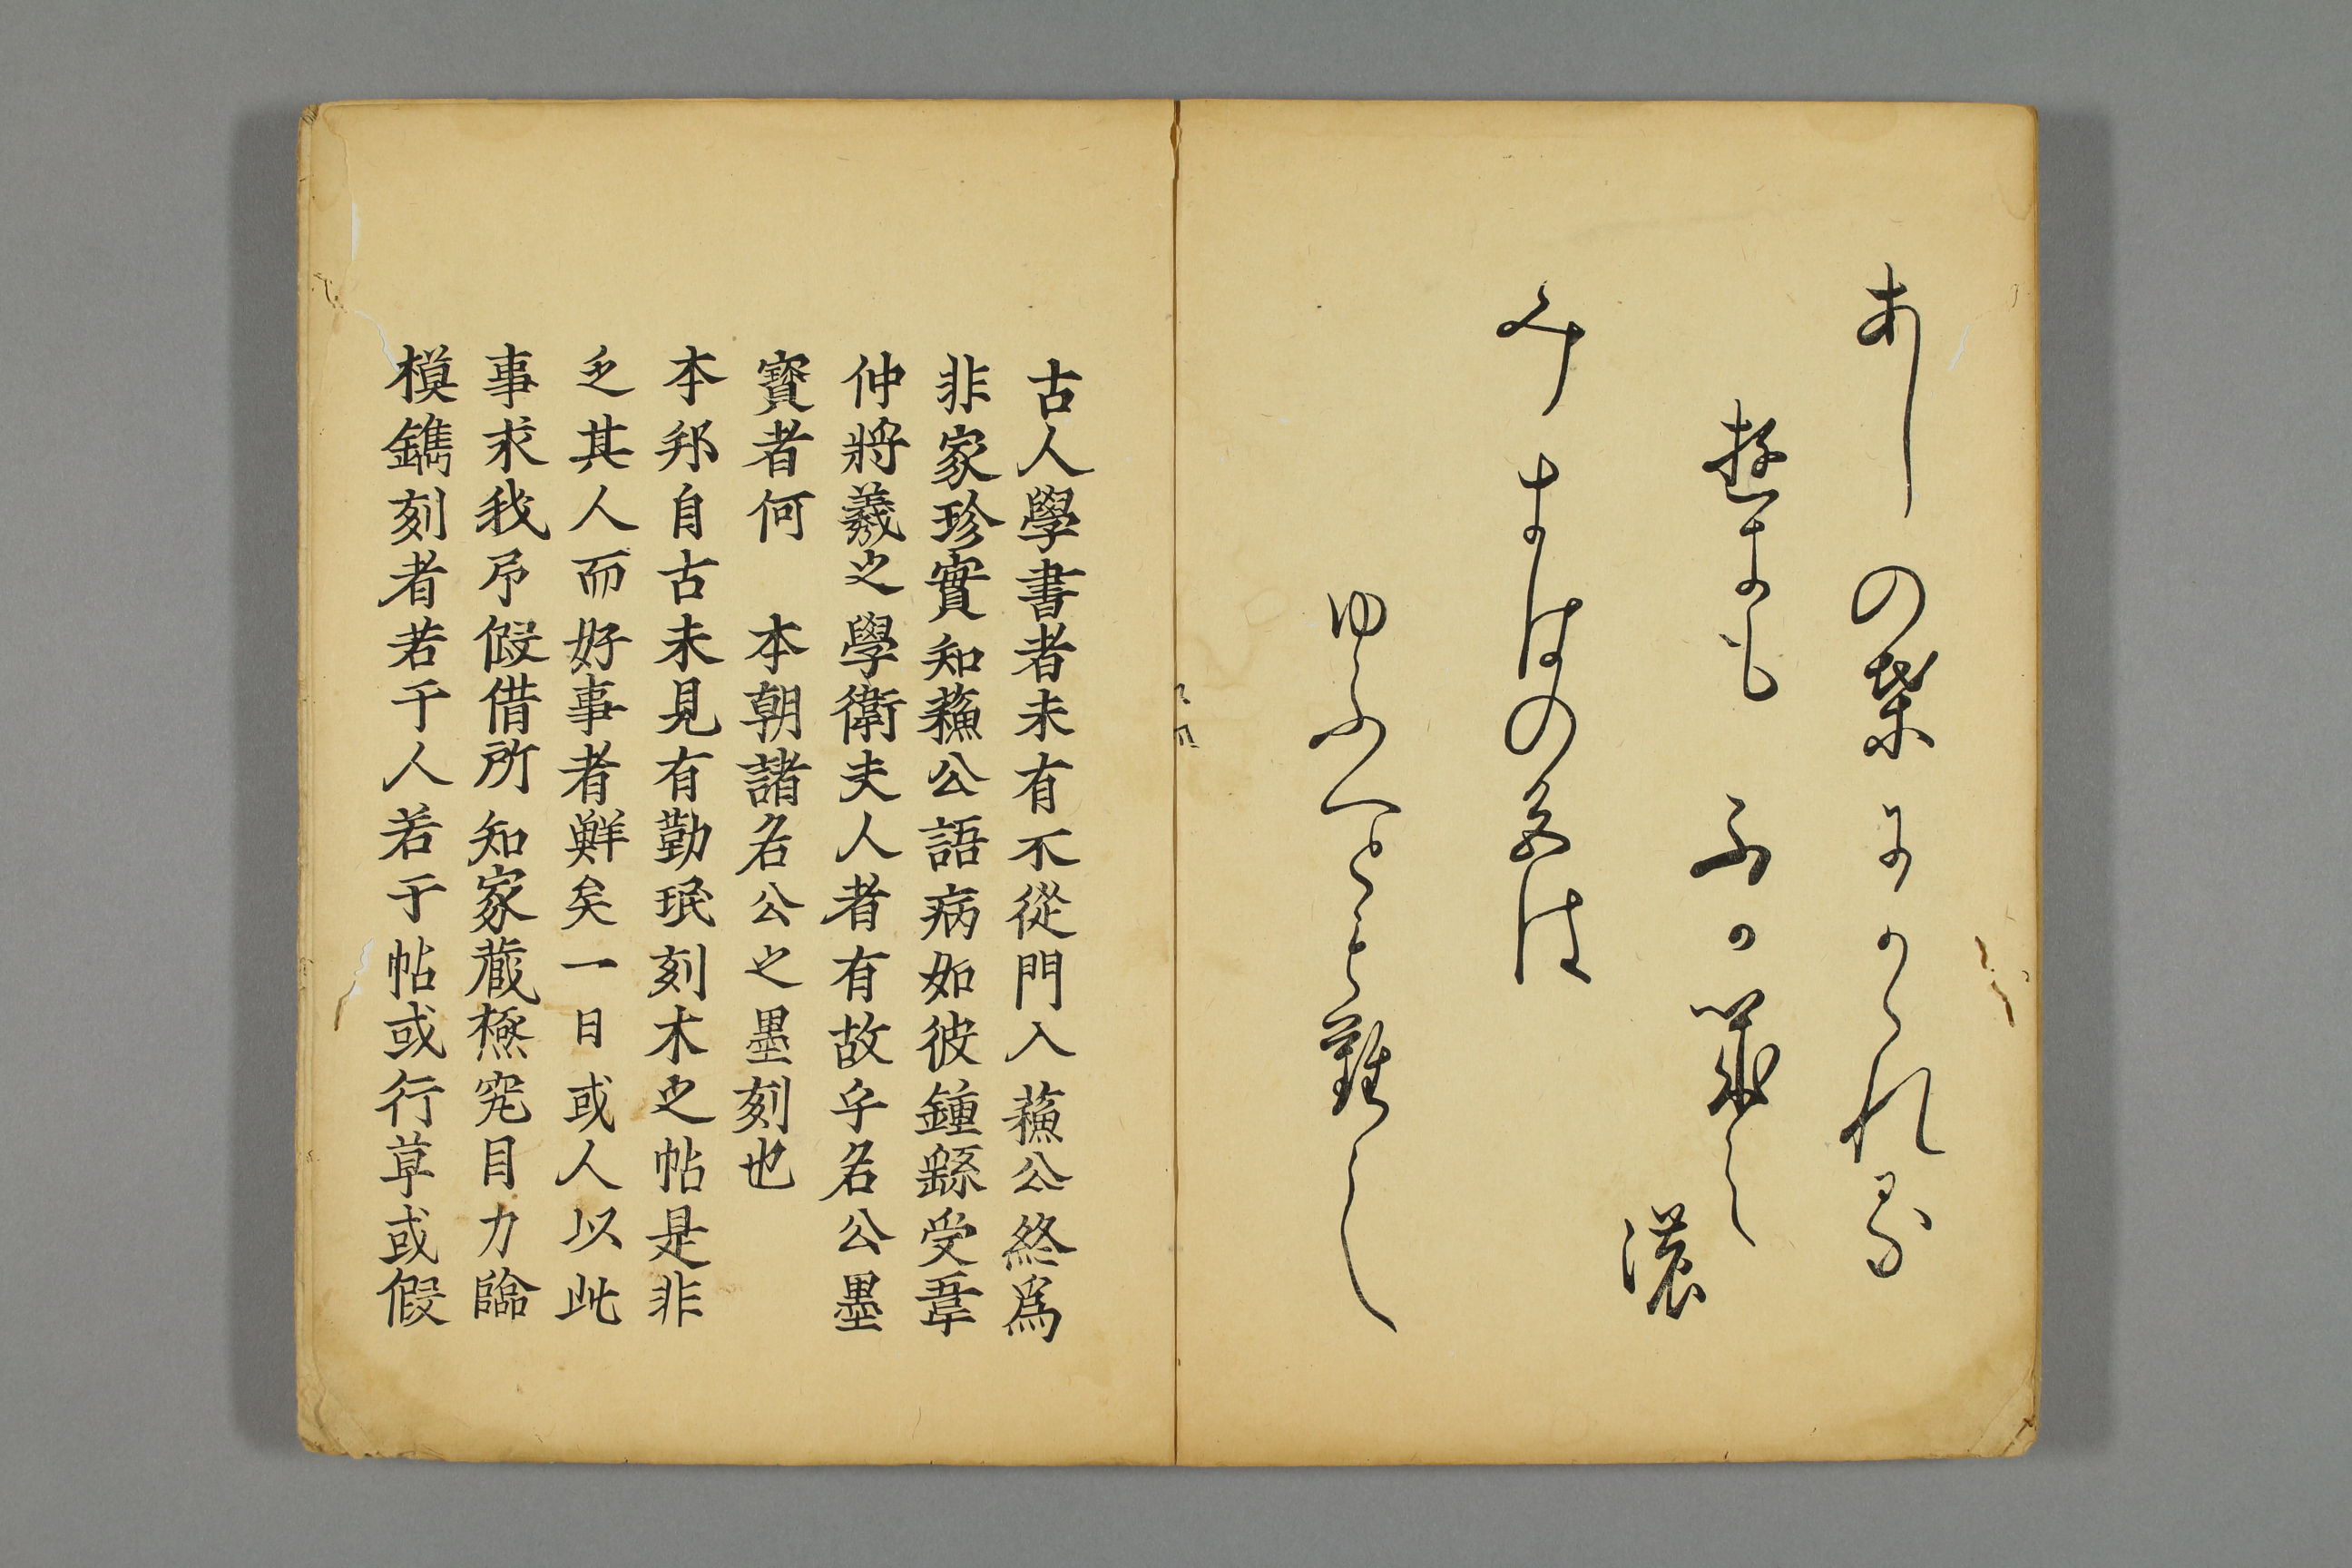 あしの葉にかゝれる
濃
ゆふへとも難し
古人學書者未有不從門入蘓公終爲
非家珍實知蘓公語病如彼鍾繇受韋
仲將羲之學衛夫人者有故乎名公墨
寳者何　本朝諸名公之墨刻也
本邦自古未見有勤珉刻木之帖是非
乏其人而好事者鮮矣一日或人以此
事求我予假借所知家藏極究目力臨
模鐫刻者若干人若干帖或行草或假